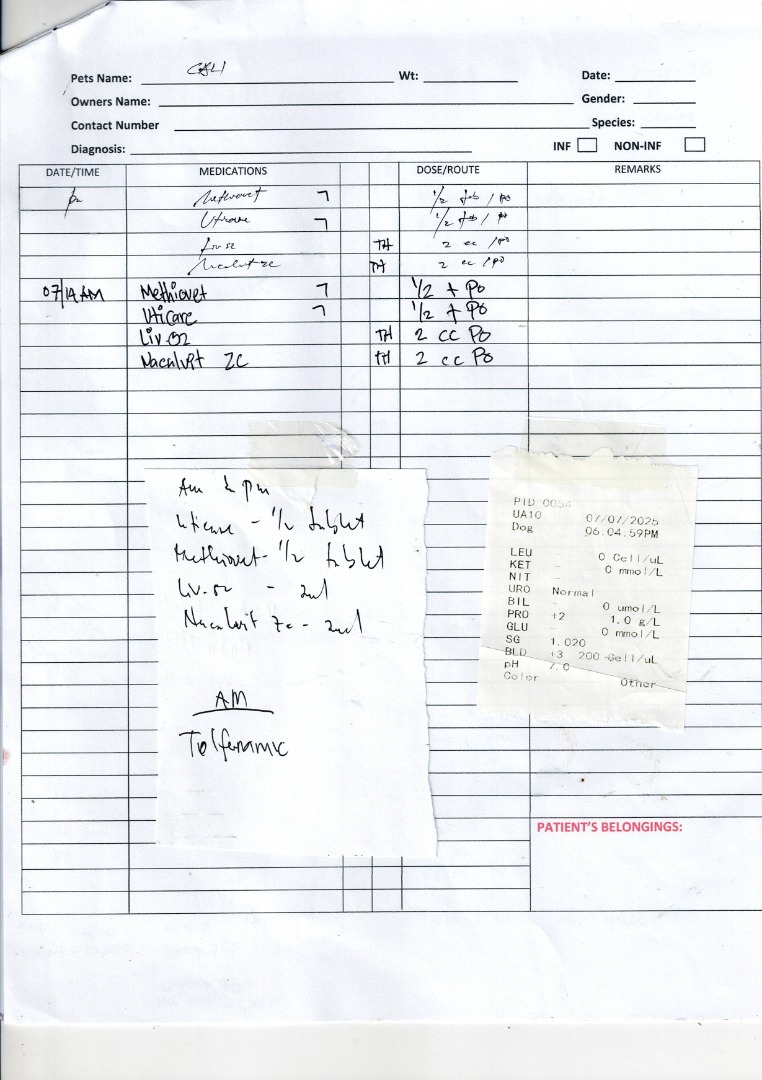 Pets Name: CALI Wt: Date:
Owners Name: Gender:
Contact Number Species:
Diagnosis: INF NON-INF
DATE/TIME MEDICATIONS DOSE/ROUTE REMARKS
Methiovet 1/2 tab / PO
Uticare 1/2 tab / PO
Liv 52 TH 2 cc / PO
Nacalvit zc TH 2 cc / PO
07/14 AM Methiovet 1/2 t PO
Uticare 1/2 t PO
Liv 52 TH 2 cc PO
Nacalvit ZC TH 2 cc PO
Am & pm
Uticare - 1/2 tablet
Methiovet - 1/2 tablet
Liv-52 - 2ml
Nacalvit Zc - 2ml
AM
Tolfenamic
PID 0054
UA10 07/07/2025
Dog 06:04:59PM
LEU - 0 Cell/uL
KET - 0 mmol/L
NIT -
URO Normal
BIL - 0 umol/L
PRO +2 1.0 g/L
GLU - 0 mmol/L
SG 1.020
BLD +3 200 Cell/uL
pH 7.0
Color Other
PATIENT'S BELONGINGS: